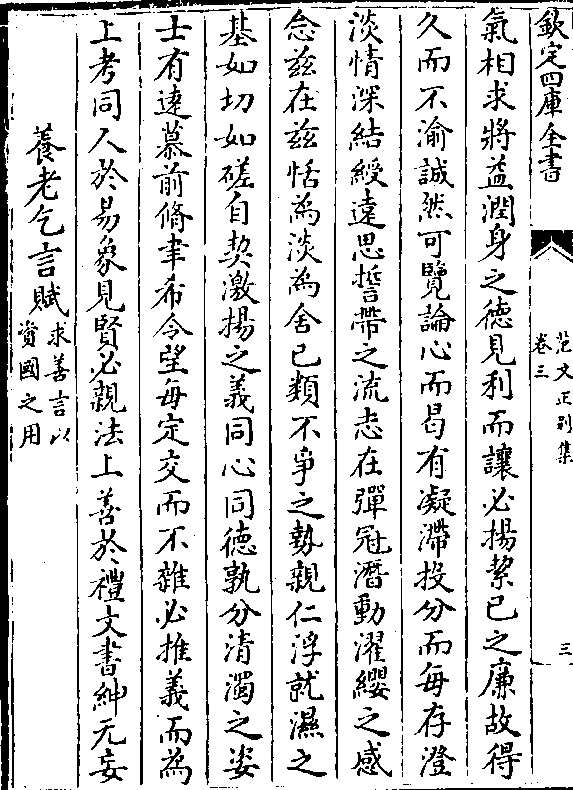 欽定四庫全書
范文正别集
卷三
三
氣相求將益潤身之徳見利而讓必揚絜已之廉故得
久而不渝誠然可覽論心而曷有凝滯投分而每存澄
淡情深結綬遠思誓帶之流志在彈冠潛動濯纓之感
念兹在兹恬為淡為舍已類不爭之勢親仁浮就濕之
基如切如磋自契激揚之義同心同徳孰分清濁之姿
士有逺慕前脩聿希令望每定交而不雜必推義而為
上考同人於易象見賢必親法上善於禮文書紳无妄
養老乞言賦
求善言以
資國之用